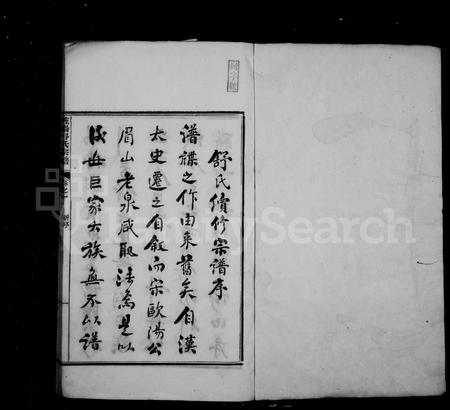 舒氏續修宗譜序
譜牒之作由來舊矣自漢
太史遷之自敘而宋歐陽公
眉山老泉咸取法焉是以
後世巨家大族無不以譜
FamilySearch